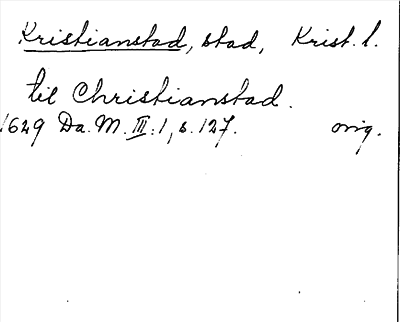 Kristianstad, stad, Krist. l.
til Christianstad.
1629 Da. M. III:1, s. 127. orig.